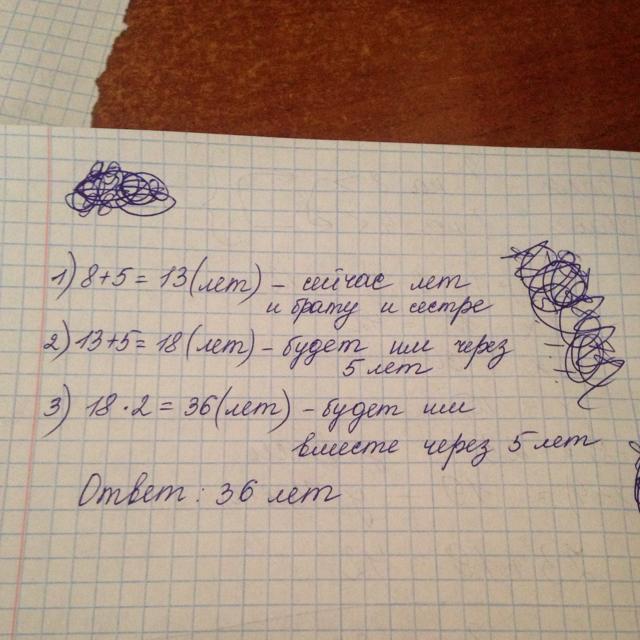 1) 8+5 = 13(лет) - сейчас лет
и брату и сестре
2) 13+5 = 18 (лет) - будет им через
5 лет
3) 18 · 2 = 36(лет) - будет им
вместе через 5 лет
Ответ: 36 лет